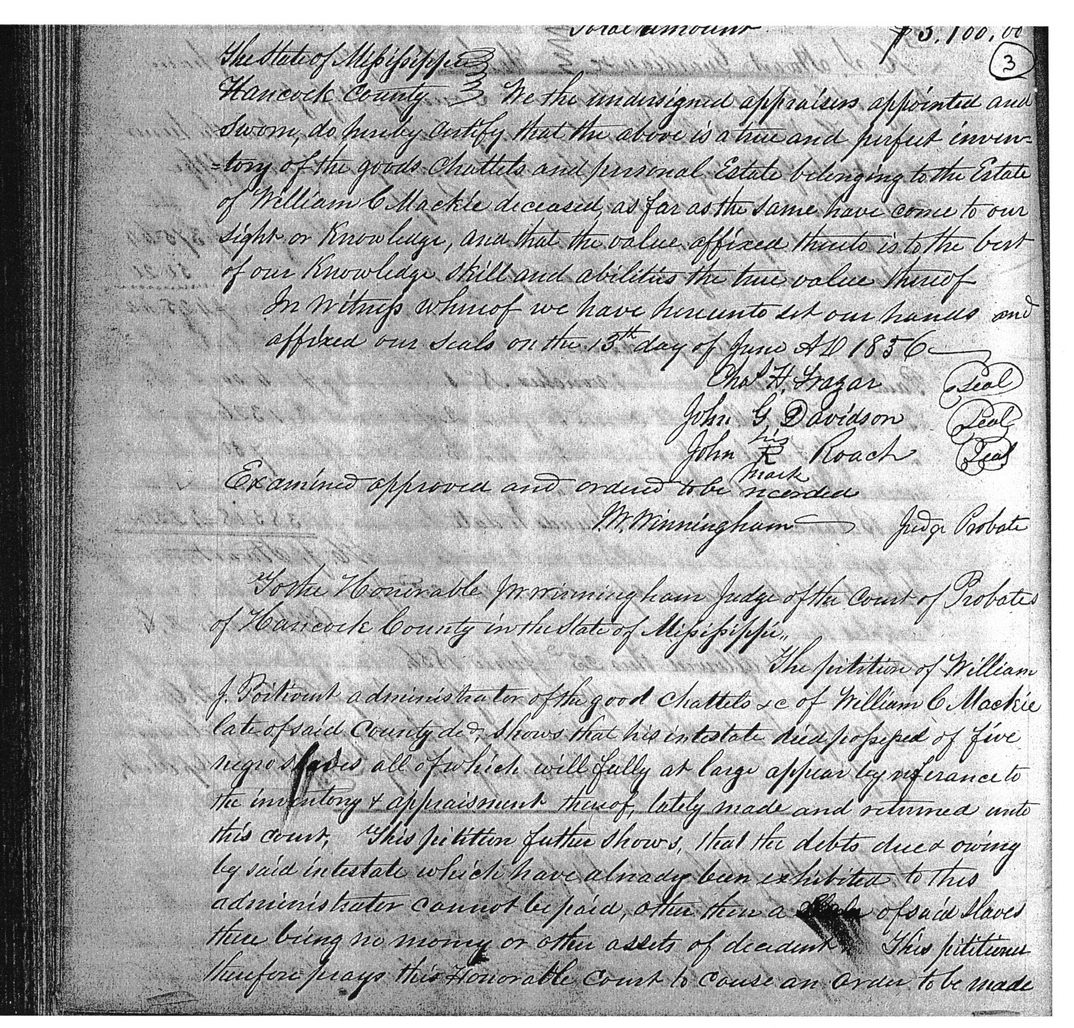 Total amount $3,100.00
3
The State of Mississippi
Hancock County We the undersigned appraisers appointed and
Sworn, do hereby certify that the above is a true and perfect inven-
-tory of the goods Chattels and personal Estate belonging to the Estate
of William C Mackie deceased, as far as the same have come to our
sight or Knowledge, and that the value affixed thereto is to the best
of our Knowledge skill and abilities the true value thereof
In Witness whereof we have hereunto set our hands and
affixed our seals on the 13th day of June AD 1856
Chas H. Frazar Seal
John G. Davidson Seal
his
John X Roach Seal
mark
Examined approved and ordered to be recorded
Winningham Judge Probate
To the Honorable Winningham Judge of the Court of Probates
of Hancock County in the State of Mississippi,,
The petition of William
J. Poitivent administrator of the good chattels &c of William C Mackie
late of said County decd, shows that his intestate died possessed of five
negro slaves all of which will fully at large appear by referance to
the inventory & appraisment thereof, lately made and returned unto
this court, This petition futher shows, that the debts due & owing
by said intestate which have already been exhibited to this
administrater cannot be paid, other then a of said slaves
there being no money or other assets of decedent This petitioner
therefore prays this Honorable Court to cause an order to be made